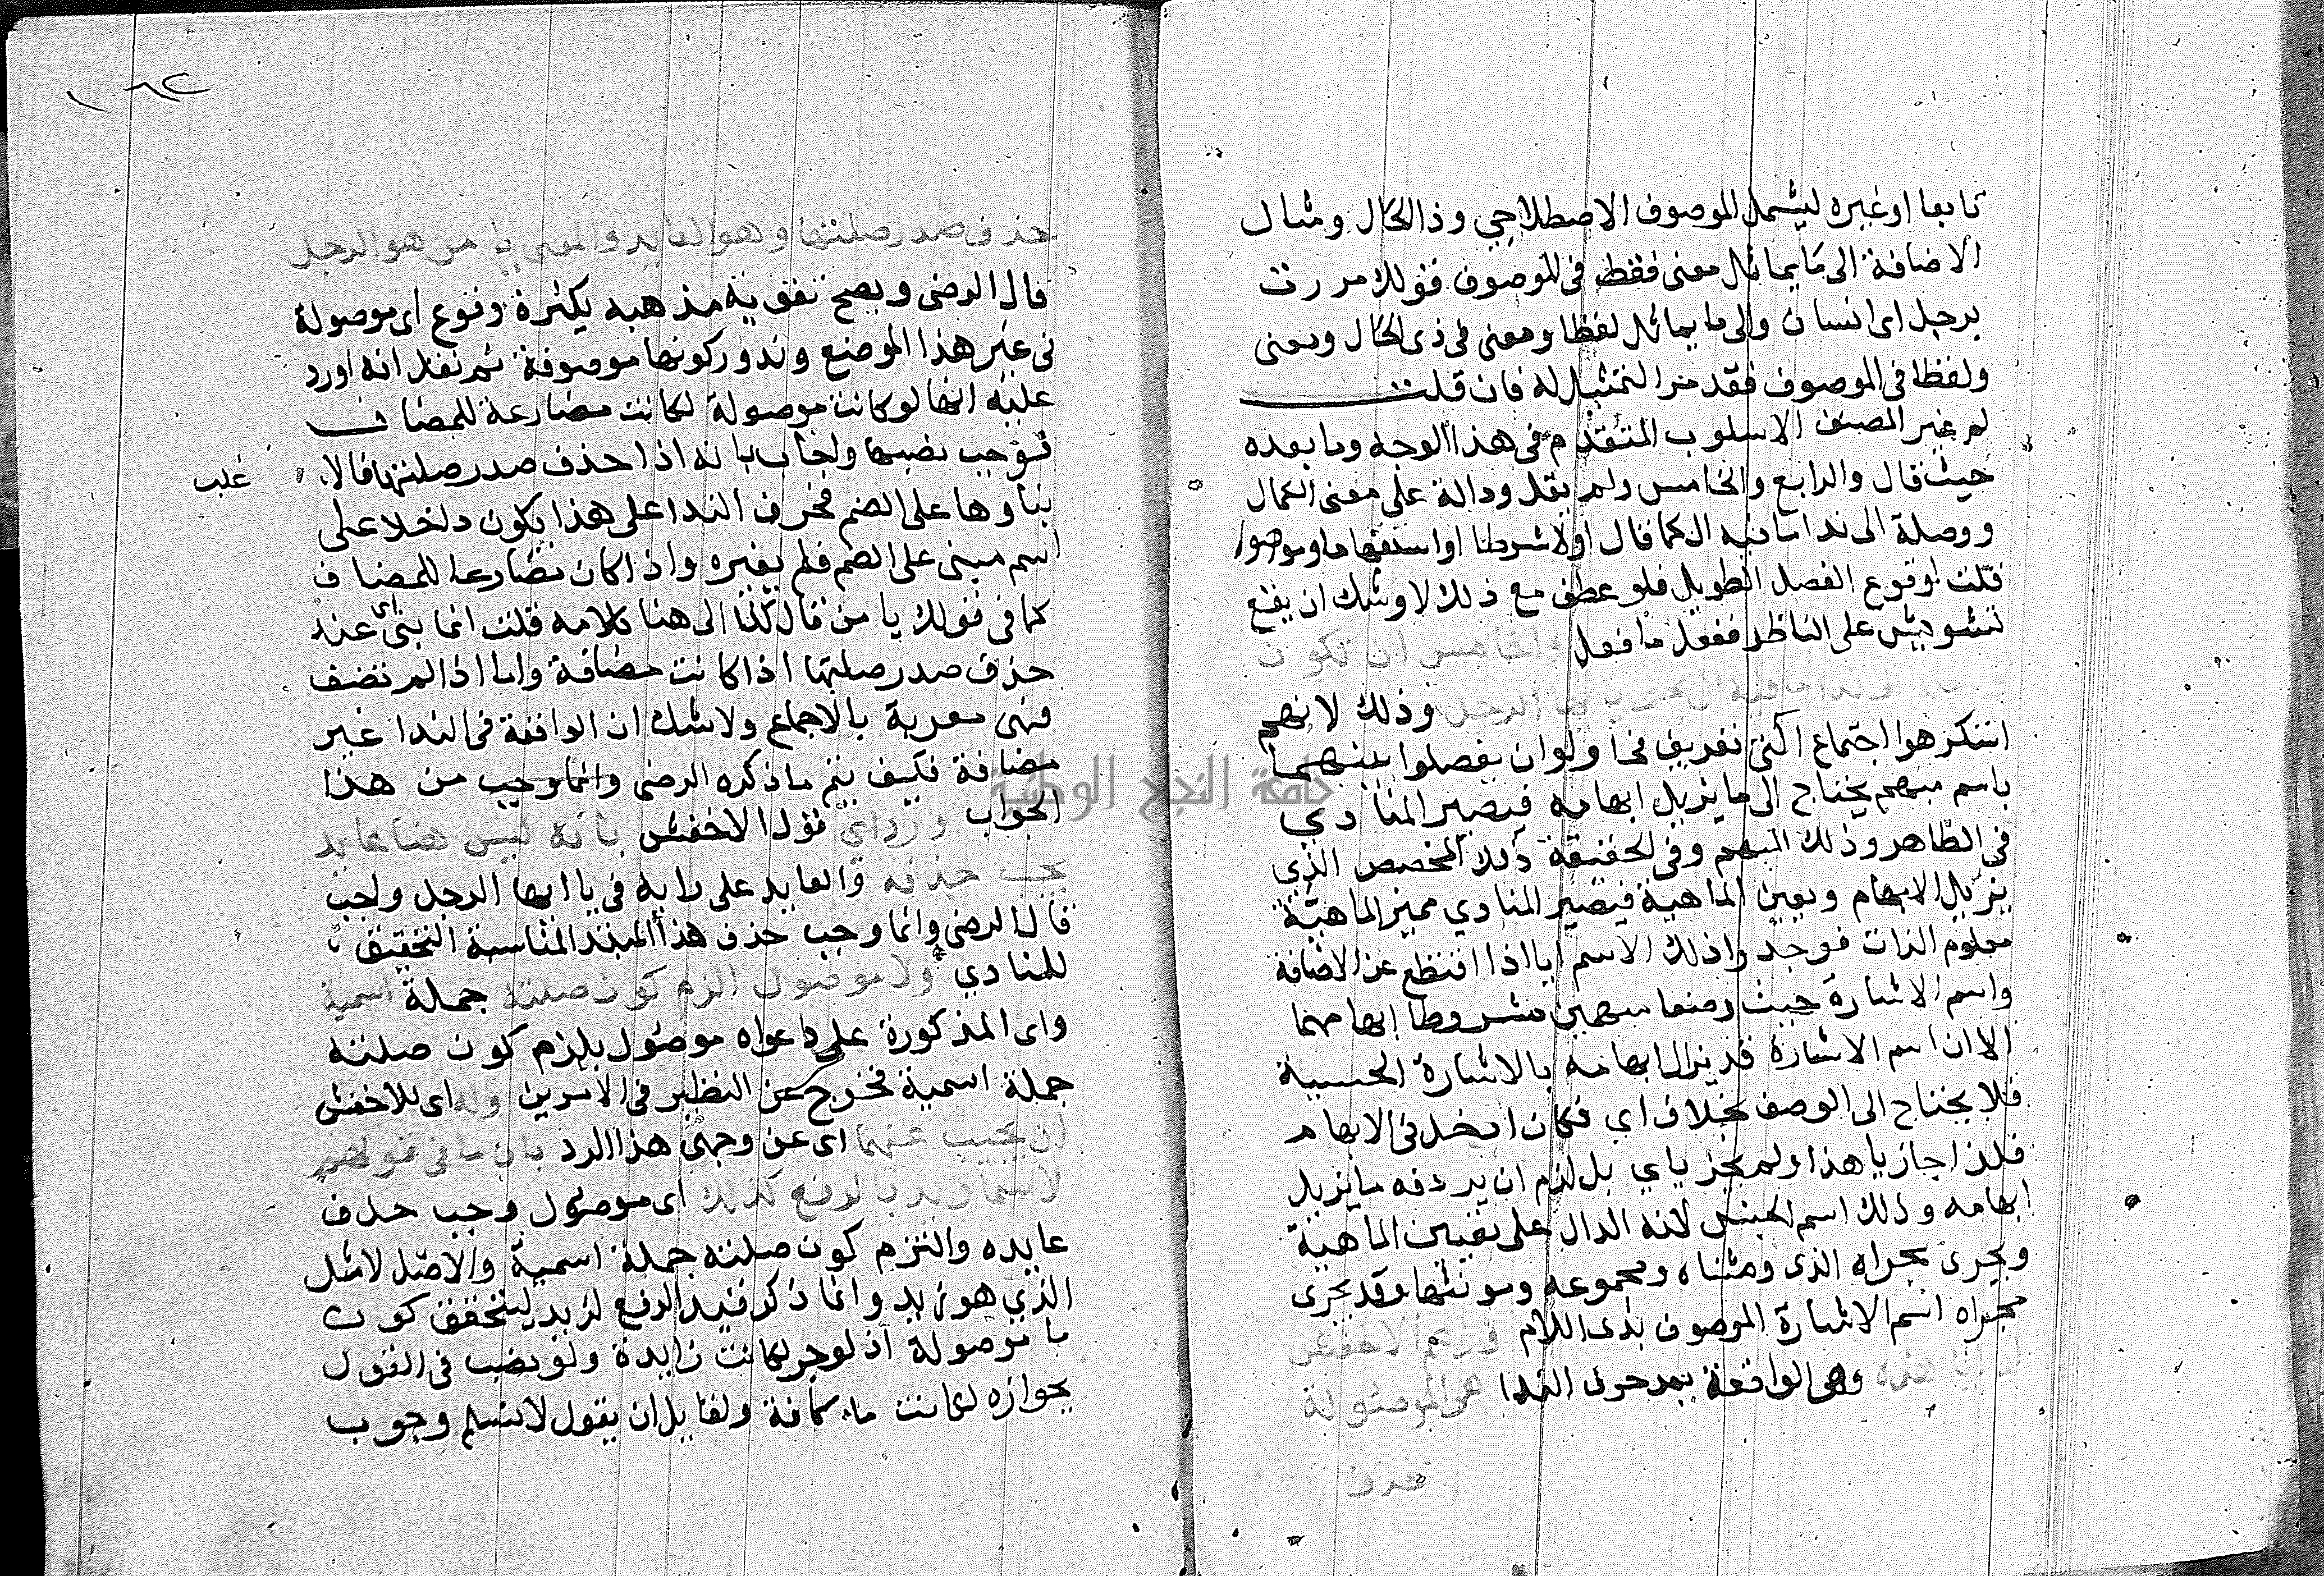 تابعا او غيره ليشمل الموصوف الاصطلاحي وذا الحال ومثال
الاضافة الى ما يماثل معنى فقط فى الموصوف قولك مررت
برجل اى انسان والى ما يماثل لفظا ومعنى فى ذى الحال ومعنى
ولفظا فى الموصوف فقد مر التمثيل له فان قلت
لم غير المصنف الاسلوب المتقدم فى هذا الوجه وما بعده
حيث قال والرابع والخامس ولم يقل ودالة على معنى الكمال
ووصلة الى ندا ما فيه ال كما قال اولا شرطا او استفهاما وموصولا
قلت لوقوع الفصل الطويل فلو عطف مع ذلك لاوشك ان يقع
تشويش على الناظر ففعل ما فعل والخامس ان تكون
وصلة لندا ما فيه ال نحو يا ايها الرجل وذلك لانهم
استكرهوا اجتماع التى تعريف فحاولوا ان يفصلوا بينهما
باسم مبهم يحتاج الى ما يزيل ابهامه فيصير المنادي
فى الظاهر وذلك المبهم وفى الحقيقة ذلك المخصص الذي
يزيل الابهام ويعين الماهية فيصير المنادي مميز الماهية
معلوم الذات فوجدوا ذلك الاسم ايا اذا اقتطع عن الاضافة
واسم الاشارة حيث وضعا مبهمين مشروطا ابهامهما
الا ان اسم الاشارة قد يزال ابهامه بالاشارة الحسية
فلا يحتاج الى الوصف بخلاف اي فكان ادخل فى الابهام
فلذا جاز يا هذا ولم يجز ياي بل لزم ان يردفه ما يزيل
ابهامه وذلك اسم الجنس لانه الدال على تعيين الماهية
ويجرى مجراه الذى ومثناه ومجموعه ومونثها وقد يجرى
مجراه اسم الاشارة الموصوف بذى اللام وزعم الاخفش
ان ايا هذه وهى الواقعة بعد حرف الندا هى الموصولة
حذف
١٨٢
حذف صدر صلتها وهو العايد والمعنى يا من هو الرجل
قال الرضى ويصح تقوية مذهبه بكثرة وقوع اى موصولة
فى غير هذا الموضع وندور كونها موصوفة ثم نقل انه اورد
عليه انها لو كانت موصولة لكانت مضارعة للمضاف
فوجب نصبها واجاب بانه اذا حذف صدر صلتها فالا
غلب
بناوها على الضم فحرف الندا على هذا يكون داخلا على
اسم مبنى على الضم فلم يغيره واذا كان مضارعا للمضاف
كما فى قولك يا من قال كذا الى هنا كلامه قلت انما بنى اى عند
حذف صدر صلتها اذا كانت مضافة واما اذا لم تضف
فهى معربة بالاجماع ولا شك ان الواقعة فى الندا غير
مضافة فكيف يتم ما ذكره الرضى وانما وجب من هذا
الجواب ورد اى قول الاخفش بانه ليس هنا عايد
يجب حذفه والعايد على رايه فى يا ايها الرجل واجب
قال الرضى وانما وجب حذف هذا المبتدا لمناسبة التخفيف
للمنادي ولا موصول الزم كون صلته جملة اسمية
واى المذكورة على دعواه موصول يلزم كون صلته
جملة اسمية فخرج عن النظير فى الامرين وله اى للاخفش
ان يجيب عنهما اى عن وجهى هذا الرد بان ما فى قولهم
لا سيما زيد بالرفع كذلك اى موصول وجب حذف
عايده والتزم كون صلته جملة اسمية والاصل لا مثل
الذي هو زيد وانما ذكر قيد الرفع لزيد ليتحقق كون
ما موصولة اذ لو جر لكانت زايدة ولو نصب فى القول
بجوازه لكانت ما كافة ولقايل ان يقول لا نسلم وجوب
جامعة النجاح الوطنية